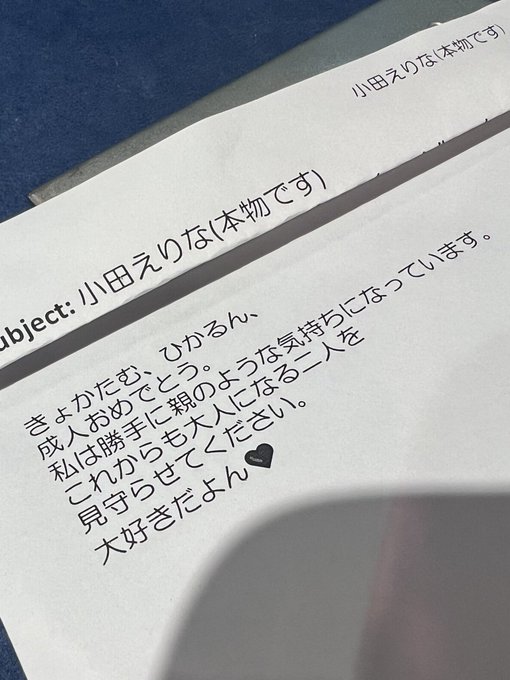 小田えりな(本物です)
ubject: 小田えりな(本物です)
きょかたむ、ひかるん、
成人おめでとう。
私は勝手に親のような気持ちになっています。
これからも大人になる二人を
見守らせてください。
大好きだよん🖤